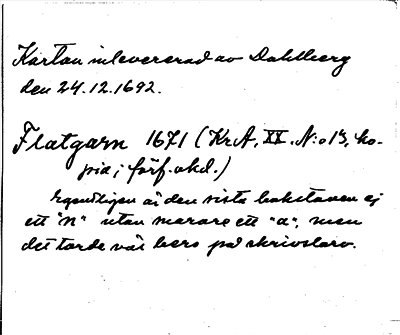 Kartan inlevererad av Dahlberg
den 24.12.1692.
Flatgarn 1671 (KrA, XX. N:o 13, ko-
pia; förf. okd.)
Egentligen är den sista bokstaven ej
ett "n" utan snarare ett "a", men
det torde väl bero på skrivslarv.